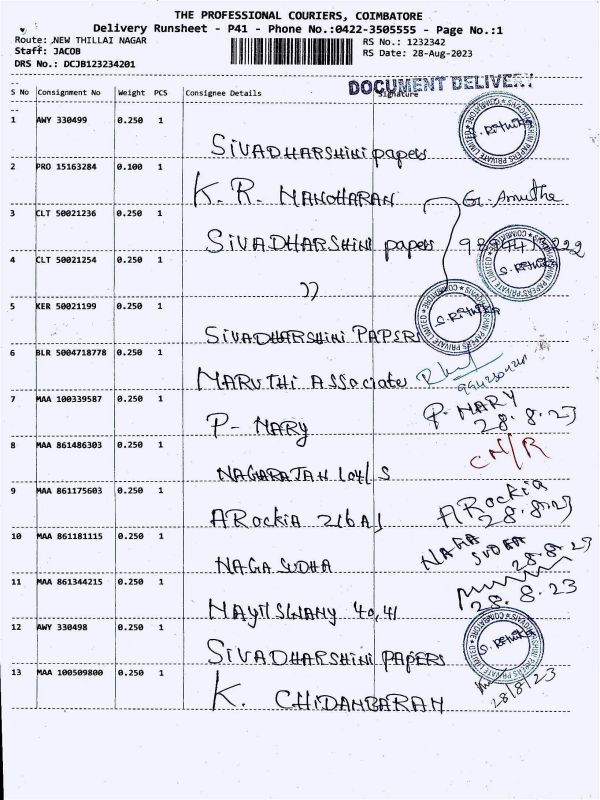 THE PROFESSIONAL COURIERS, COIMBATORE
Delivery Runsheet - P41 - Phone No.:0422-3505555 - Page No.:1
Route: ,NEW THILLAI NAGAR
RS No.: 1232342
Staff: JACOB
RS Date: 28-Aug-2023
DRS No.: DCJB123234201
DOCUMENT DELIVERY
S No Consignment No Weight PCS Consignee Details Signature
1 AWY 330499 0.250 1
SIVADHARSHINI papers
2 PRO 15163284 0.100 1
K. R. MANOHARAN
3 CLT 50021236 0.250 1
SIVADHARSHINI papers
4 CLT 50021254 0.250 1
")
5 KER 50021199 0.250 1
SIVADHARSHINI PAPERS
6 BLR 5004718778 0.250 1
MARUTHI ASSociates
7 MAA 100339587 0.250 1
P- MARY P. MARY
28.8.23
8 MAA 861486303 0.250 1
NAGARAJAN 104/S
9 MAA 861175603 0.250 1
ARockiA 216 A1 ARockia
28.8.23
10 MAA 861181115 0.250 1
NAGA SUDHA NAGA SUDHA
28.8.23
11 MAA 861344215 0.250 1
MAYILSWAMY 40,41 28.8.23
12 AWY 330498 0.250 1
SIVADHARSHINI PAPERS
13 MAA 100509800 0.250 1
K. CHIDAMBARAM 28/8/23